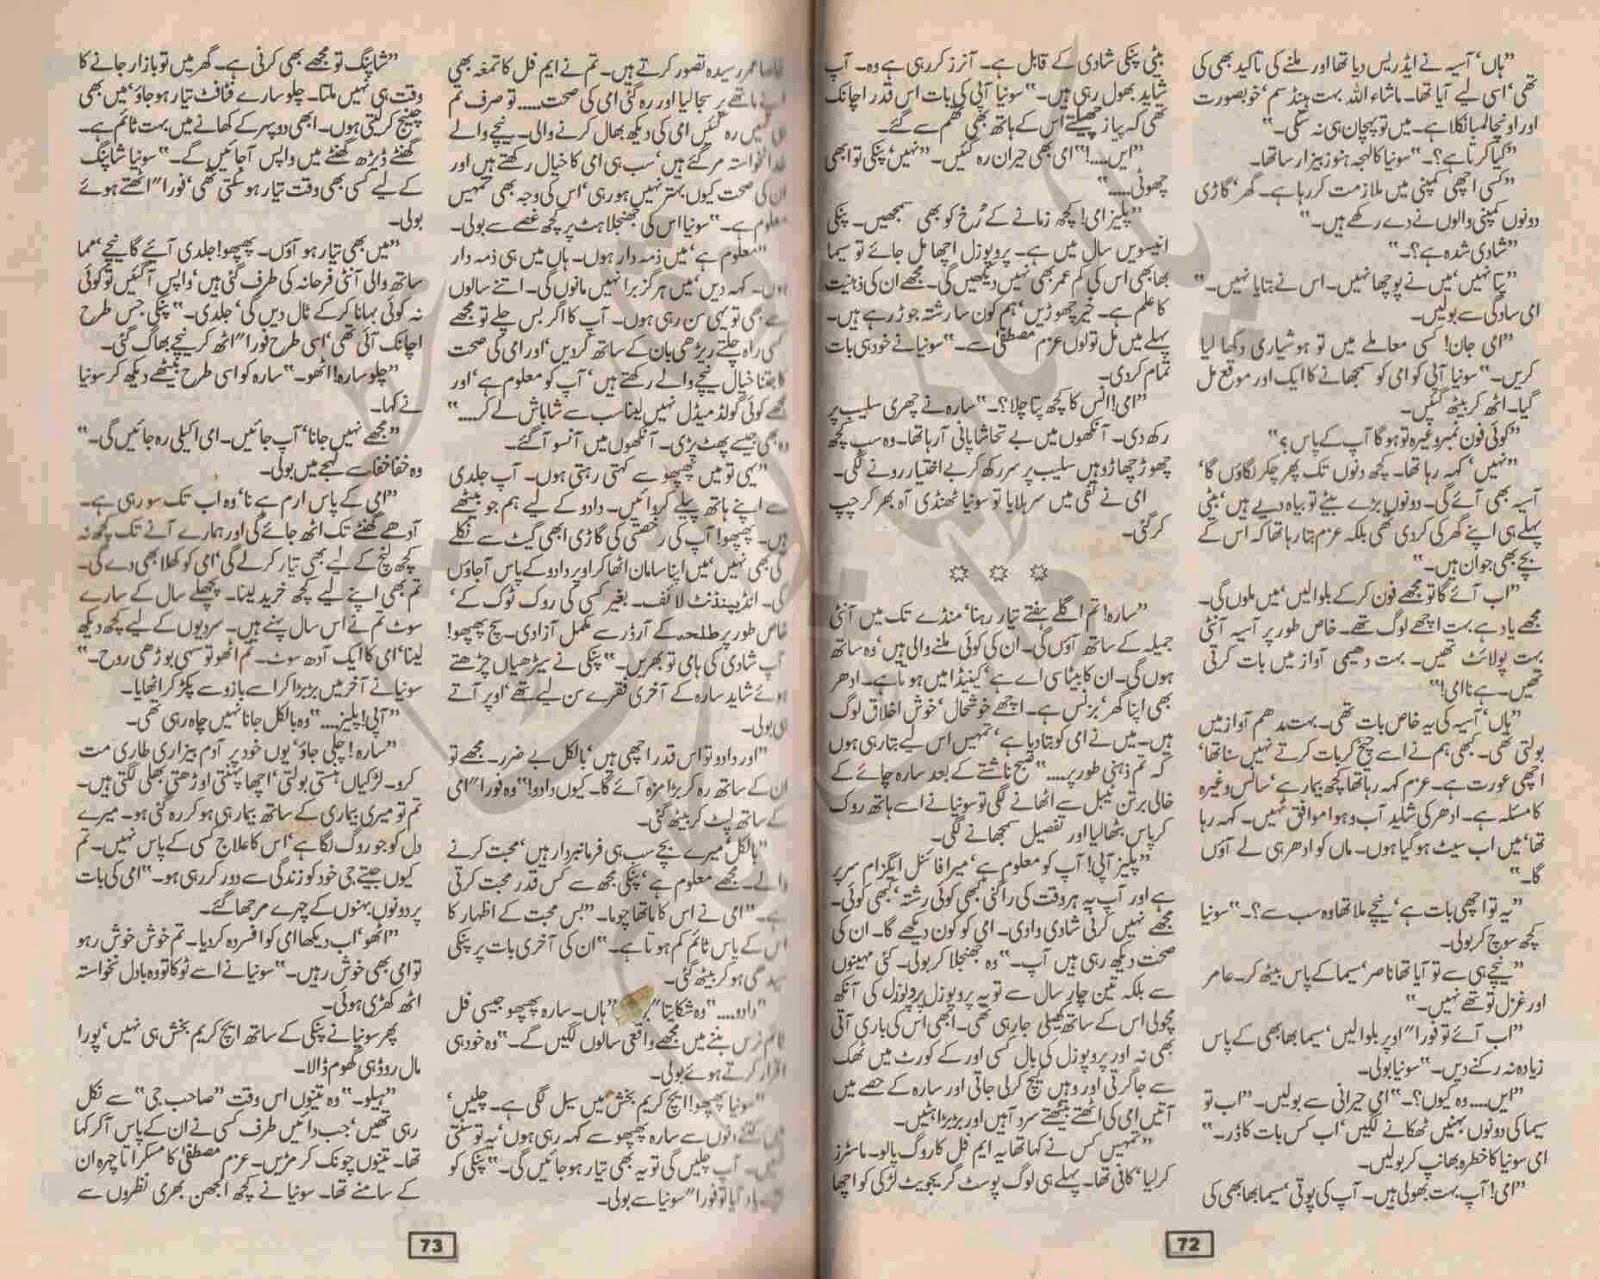 ”ہاں‘ آسیہ نے ایڈریس دیا تھا اور ملنے کی تاکید بھی کی
تھی‘ اسی لیے آیا تھا۔ ماشاء اللہ بہت ہینڈسم‘ خوبصورت
اور اونچا لمبا نکلا ہے۔ میں تو پہچان ہی نہ سکی۔“
”کیا کرتا ہے؟۔“ سونیا کا لہجہ ہنوز بیزار سا تھا۔
”کسی اچھی کمپنی میں ملازمت کر رہا ہے۔ گھر‘ گاڑی
دونوں کمپنی والوں نے دے رکھے ہیں۔“
”شادی شدہ ہے؟۔“
”پتا نہیں‘ میں نے پوچھا نہیں۔ اس نے بتایا نہیں۔“
امی سادگی سے بولیں۔
”امی جان! کسی معاملے میں تو ہوشیاری دکھا لیا
کریں۔“ سونیا آپی کو امی کو سمجھانے کا ایک اور موقع مل
گیا۔ اٹھ کر بیٹھ گئیں۔
”کوئی فون نمبر وغیرہ تو ہو گا آپ کے پاس؟“
”نہیں‘ کہہ رہا تھا۔ کچھ دنوں تک پھر چکر لگاؤں گا‘
آسیہ بھی آئے گی۔ دونوں بڑے بیٹے تو بیاہ دیے ہیں‘ بیٹی
پہلے ہی اپنے گھر کی کردی تھی بلکہ عزم بتا رہا تھا کہ اس کے
بچے بھی جوان ہیں۔“
”اب آئے گا تو مجھے فون کر کے بلوالیں‘ میں ملوں گی۔
مجھے یاد ہے بہت اچھے لوگ تھے۔ خاص طور پر آسیہ آنٹی
بہت پولائٹ تھیں۔ بہت دھیمی آواز میں بات کرتی
تھیں۔ ہے نا امی!“
”ہاں‘ آسیہ کی یہ خاص بات تھی۔ بہت مدھم آواز میں
بولتی تھی۔ کبھی ہم نے اسے چیخ کر بات کرتے نہیں سنا تھا‘
اچھی عورت ہے۔ عزم کہہ رہا تھا کچھ بیمار ہے‘ سانس وغیرہ
کا مسئلہ ہے۔ ادھر کی شاید آب و ہوا موافق نہیں۔ کہہ رہا
تھا‘ میں اب سیٹ ہو گیا ہوں۔ ماں کو ادھر ہی لے آؤں
گا۔“
”یہ تو اچھی بات ہے‘ نیچے ملا تھا وہ سب سے؟۔“ سونیا
کچھ سوچ کر بولی۔
”نیچے ہی سے تو آیا تھا ناصر‘ سیما کے پاس بیٹھ کر۔ عامر
اور غزل تو تھے نہیں۔“
”اب آئے تو فورا“ اوپر بلوالیں‘ سیما بھابھی کے پاس
زیادہ نہ رکنے دیں۔“ سونیا بولی۔
”ایں.... وہ کیوں؟۔“ امی حیرانی سے بولیں۔ ”اب تو
سیما کی دونوں بہنیں ٹھکانے لگیں‘ اب کس بات کا ڈر۔“
امی سونیا کا خطرہ بھانپ کر بولیں۔
”امی! آپ بہت بھولی ہیں۔ آپ کی پوتی‘ سیما بھابھی کی
بیٹی پنکی شادی کے قابل ہے۔ آنرز کر رہی ہے وہ۔ آپ
شاید بھول رہی ہیں۔“ سونیا آپی کی بات اس قدر اچانک
تھی کہ پیاز چھیلتے اس کے ہاتھ بھی تھم سے گئے۔
”ایں....!“ امی بھی حیران رہ گئیں۔ ”نہیں‘ پنکی تو ابھی
چھوٹی.....“
”پلیز امی! کچھ زمانے کے رُخ کو بھی سمجھیں۔ پنکی
انیسویں سال میں ہے۔ پروپوزل اچھا مل جائے تو سیما
بھابھی اس کی کم عمر بھی نہیں دیکھیں گی۔ مجھے ان کی ذہنیت
کا علم ہے۔ خیر چھوڑیں‘ ہم کون سا رشتہ جوڑ رہے ہیں۔
پہلے میں مل تو لوں عزم مصطفیٰ سے۔“ سونیا نے خود ہی بات
تمام کر دی۔
”امی! انس کا کچھ پتا چلا؟۔“ سارہ نے چھری سلیب پر
رکھ دی۔ آنکھوں میں بے تحاشا پانی آ رہا تھا۔ وہ سب کچھ
چھوڑ چھاڑ وہیں سلیب پر سر رکھ کر بے اختیار رونے لگی۔
امی نے نفی میں سر ہلایا تو سونیا ٹھنڈی آہ بھر کر چپ
کر گئی۔
☼ ☼ ☼
”سارہ! تم اگلے ہفتے تیار رہنا‘ منڈے تک میں آنٹی
جمیلہ کے ساتھ آؤں گی۔ ان کی کوئی ملنے والی ہیں‘ وہ ساتھ
ہوں گی۔ ان کا بیٹا سی اے ہے‘ کینیڈا میں ہوتا ہے۔ ادھر
بھی اپنا گھر‘ بزنس ہے۔ اچھے خوشحال‘ خوش اخلاق لوگ
ہیں۔ میں نے امی کو بتا دیا ہے‘ تمہیں اس لیے بتا رہی ہوں
کہ تم ذہنی طور پر....“ صبح ناشتے کے بعد سارہ چائے کے
خالی برتن ٹیبل سے اٹھانے لگی تو سونیا نے اسے ہاتھ روک
کر پاس بٹھا لیا اور تفصیل سمجھانے لگی۔
”پلیز آپی! آپ کو معلوم ہے‘ میرا فائنل ایگزام سر پر
ہے اور آپ یہ ہر وقت کی راگنی بھی کوئی رشتہ‘ بھی کوئی۔
مجھے نہیں کرنی شادی وادی۔ امی کو کون دیکھے گا۔ ان کی
صحت دیکھ رہی ہیں آپ۔“ وہ جھنجلا کر بولی۔ کئی مہینوں
سے بلکہ تین چار سال سے تو یہ پروپوزل پروپوزل کی آنکھ
مچولی اس کے ساتھ کھیلی جا رہی تھی۔ ابھی اس کی باری آتی
بھی نہ اور پروپوزل کی بال کسی اور کے کورٹ میں ٹھک
سے جا گرتی اور وہیں کیچ کرلی جاتی اور سارہ کے حصے میں
آتیں امی کی اٹھتے بیٹھتے سرد آہیں اور بڑبڑاہٹیں۔
”تمہیں کس نے کہا تھا یہ ایم فل کا روگ پالو۔ ماسٹرز
کر لیا‘ کافی تھا۔ پہلے ہی لوگ پوسٹ گریجویٹ لڑکی کو اچھا
72
رسیدہ تصور کرتے ہیں۔ تم نے ایم فل کا تمغہ بھی
ماتھے پر سجا لیا اور رہ گئی امی کی صحت..... تو صرف تم
نہیں رہ گئیں امی کی دیکھ بھال کرنے والی۔ نیچے والے
مر گئے ہیں‘ سب ہی امی کا خیال رکھتے ہیں اور
ان کی صحت کیوں بہتر نہیں ہو رہی‘ اس کی وجہ بھی تمہیں
معلوم ہے۔“ سونیا اس کی جھنجلاہٹ پر کچھ غصے سے بولی۔
”معلوم ہے‘ میں ذمہ دار ہوں۔ ہاں میں ہی ذمہ دار
ہوں۔ کہہ دیں‘ میں ہرگز برا نہیں مانوں گی۔ اتنے سالوں
سے بھی تو یہی سن رہی ہوں۔ آپ کا اگر بس چلے تو مجھے
کسی راہ چلتے ریڑھی بان کے ساتھ کر دیں‘ اور امی کی صحت
کا جتنا خیال نیچے والے رکھتے ہیں‘ آپ کو معلوم ہے‘ اور
مجھے کوئی گولڈ میڈل نہیں لینا سب سے شاباش لے کر....“
وہ بھی جیسے پھٹ پڑی۔ آنکھوں میں آنسو آگئے۔
”یہی تو میں پھپھو سے کہتی رہتی ہوں۔ آپ جلدی
سے اپنے ہاتھ پیلے کروائیں۔ دادو کے لیے ہم جو بیٹھے
ہیں۔ پھپھو! آپ کی رخصتی کی گاڑی ابھی گیٹ سے نکلے
گی بھی نہیں‘ میں اپنا سامان اٹھا کر اوپر دادو کے پاس آجاؤں
گی۔ انڈیپنڈنٹ لائف۔ بغیر کسی کی روک ٹوک کے‘
خاص طور پر طلحہ کے آرڈر سے مکمل آزادی۔ سچ پھپھو!
آپ شادی کی ہامی تو بھریں۔“ پنکی نے سیڑھیاں چڑھتے
ہوئے شاید سارہ کے آخری فقرے سن لیے تھے‘ اوپر آتے
ہی بولی۔
”اور دادو تو اس قدر اچھی ہیں‘ بالکل بے ضرر۔ مجھے تو
ان کے ساتھ رہ کر بڑا مزہ آئے گا۔ کیوں دادو!“ وہ فورا“ امی
کے ساتھ لپٹ کر بیٹھ گئی۔
”بالکل‘ میرے بچے سب ہی فرمانبردار ہیں‘ محبت کرنے
والے۔ مجھے معلوم ہے‘ پنکی مجھ سے کس قدر محبت کرتی
ہے۔“ امی نے اس کا ماتھا چوما۔ ”بس محبت کے اظہار کا
اس کے پاس ٹائم کم ہوتا ہے۔“ ان کی آخری بات پر پنکی
سیدھی ہو کر بیٹھ گئی۔
”دادو....“ وہ شکایتا“ ”ہاں۔ سارہ پھپھو جیسی فل
ٹائم نرس بننے میں مجھے واقعی سالوں لگیں گے۔“ وہ خود ہی
اقرار کرتے ہوئے بولی۔
”سونیا پھپھو! ایچ کریم بخش میں سیل لگی ہے۔ چلیں‘
میں کتنے دنوں سے سارہ پھپھو سے کہہ رہی ہوں‘ یہ تو سنتی
نہیں۔ آپ چلیں گی تو یہ بھی تیار ہو جائیں گی۔“ پنکی کو
یاد آیا تو فورا“ سونیا سے بولی۔
”شاپنگ تو مجھے بھی کرنی ہے۔ گھر میں تو بازار جانے کا
وقت ہی نہیں ملتا۔ چلو سارے فٹافٹ تیار ہو جاؤ‘ میں بھی
چینج کرلیتی ہوں۔ ابھی دوپہر کے کھانے میں بہت ٹائم ہے۔
گھنٹے ڈیڑھ گھنٹے میں واپس آجائیں گے۔“ سونیا شاپنگ
کے لیے کسی بھی وقت تیار ہو سکتی تھی‘ فورا“ اٹھتے ہوئے
بولی۔
”میں بھی تیار ہو آؤں۔ پھپھو! جلدی آئے گا نیچے‘ مما
ساتھ والی آنٹی فرحانہ کی طرف گئی ہیں‘ واپس آگئیں تو کوئی
نہ کوئی بہانا کر کے ٹال دیں گی‘ جلدی۔“ پنکی جس طرح
اچانک آئی تھی‘ اسی طرح فورا“ اٹھ کر نیچے بھاگ گئی۔
”چلو سارہ! اٹھو۔“ سارہ کو اسی طرح بیٹھے دیکھ کر سونیا
نے کہا۔
”مجھے نہیں جانا‘ آپ جائیں۔ امی اکیلی رہ جائیں گی۔“
وہ خفا خفا سے لہجے میں بولی۔
”امی کے پاس ارم ہے نا‘ وہ اب تک سو رہی ہے۔
آدھے گھنٹے تک اٹھ جائے گی اور ہمارے آنے تک کچھ نہ
کچھ لنچ کے لیے بھی تیار کرلے گی‘ امی کو کھلا بھی دے گی۔
تم بھی اپنے لیے کچھ خرید لینا۔ پچھلے سال کے سارے
سوٹ تم نے اس سال پہنے ہیں۔ سردیوں کے لیے کچھ دیکھ
لینا‘ امی کا ایک آدھ سوٹ۔ تم اٹھو تو سہی بوڑھی روح۔“
سونیا نے آخر میں بڑبڑا کر اسے بازو سے پکڑ کر اٹھایا۔
”آپی! پلیز....“ وہ بالکل جانا نہیں چاہ رہی تھی۔
”سارہ! چلی جاؤ‘ یوں خود پر آدم بیزاری طاری مت
کرو۔ لڑکیاں ہنستی بولتی‘ اچھا پہنتی اوڑھتی بھلی لگتی ہیں۔
تم تو میری بیماری کے ساتھ بیمار ہی ہو کر رہ گئی ہو۔ میرے
دل کو جو روگ لگا ہے‘ اس کا علاج کسی کے پاس نہیں۔ تم
کیوں جیتے جی خود کو زندگی سے دور کر رہی ہو۔“ امی کی بات
پر دونوں بہنوں کے چہرے مرجھا گئے۔
”اٹھو‘ اب دیکھا امی کو افسردہ کر دیا۔ تم خوش خوش رہو
تو امی بھی خوش رہیں۔“ سونیا نے اسے ٹوکا تو وہ بادل نخواستہ
اٹھ کھڑی ہوئی۔
پھر سونیا نے پنکی کے ساتھ ایچ کریم بخش ہی نہیں‘ پورا
مال روڈ ہی گھوم ڈالا۔
”ہیلو۔“ وہ تینوں اس وقت ”صاحب جی“ سے نکل
رہی تھیں‘ جب دائیں طرف کسی نے ان کے پاس آکر کہا
تھا۔ تینوں چونک کر مڑیں۔ عزم مصطفیٰ کا مسکراتا چہرہ ان
کے سامنے تھا۔ سونیا نے کچھ الجھن بھری نظروں سے
73